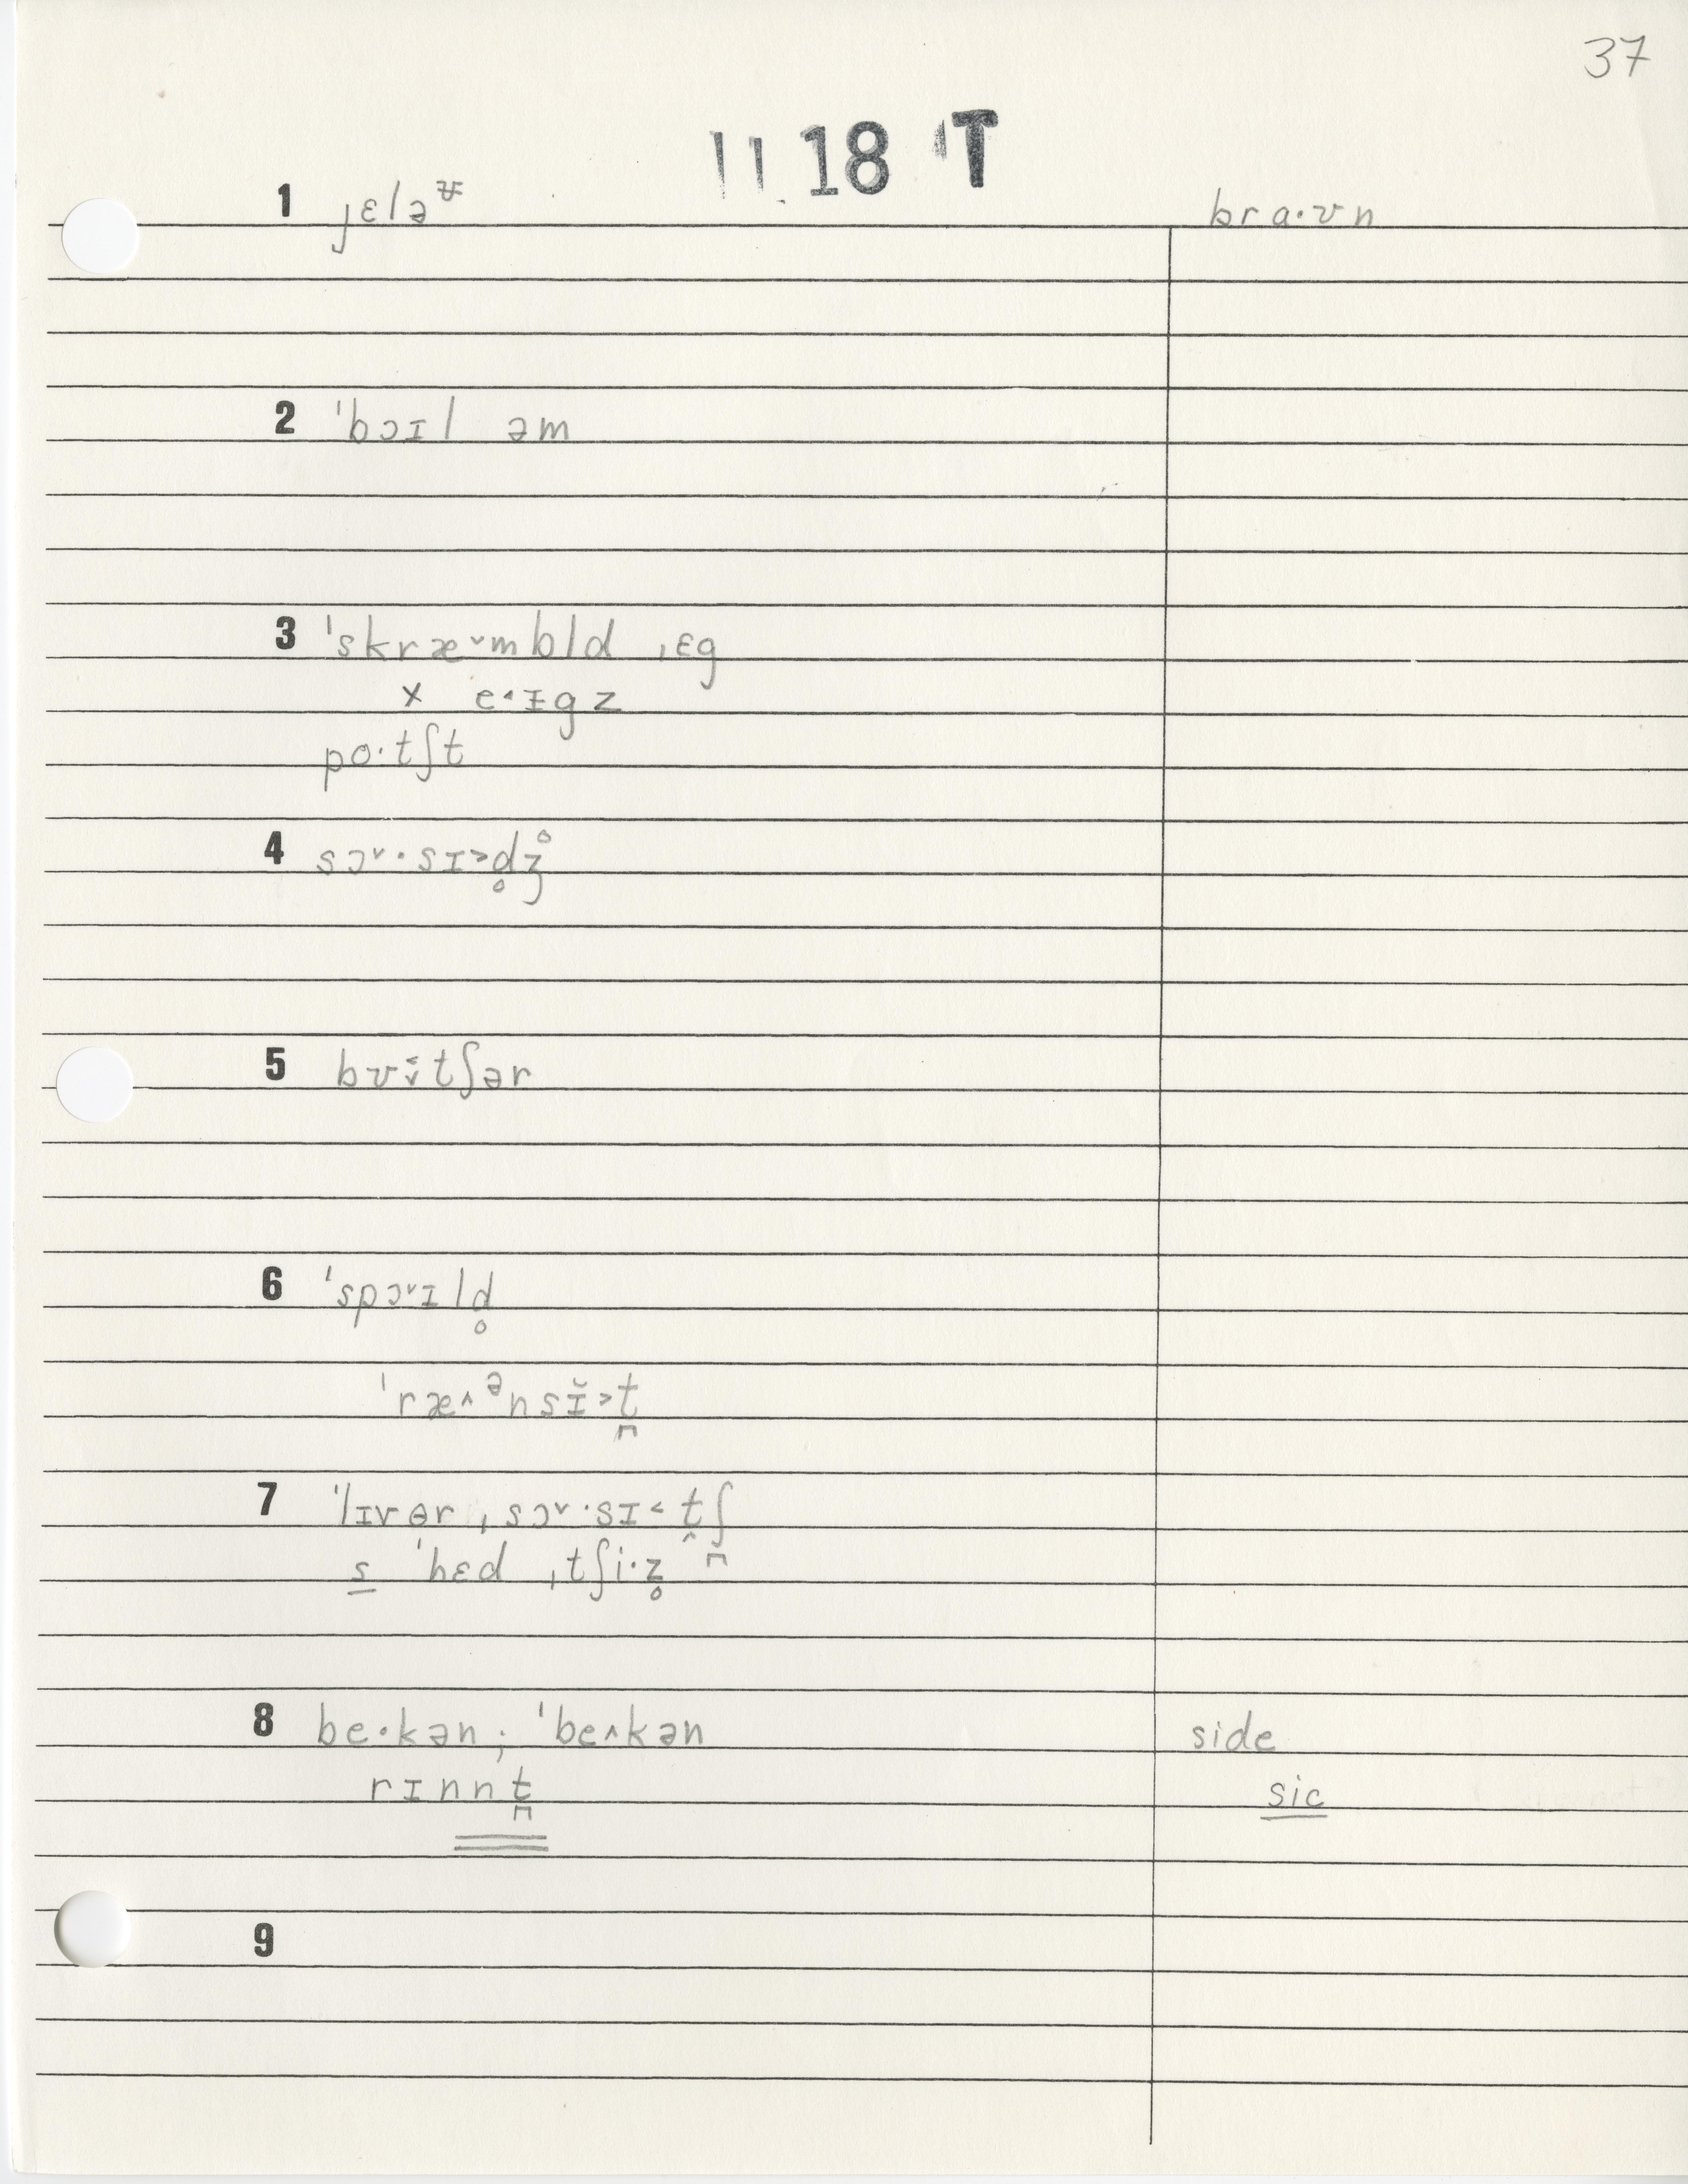 37
11 18 T
1 jɛləᵿ braˑʊn
2 ˈbɔɪl əm
3 ˈskræ˅mbld ˌɛg
x e˂ˑɪgz
poˑtʃt
4 sɔ˅ˑsɪ˃d̥ʒ̊
5 bʊ˂ˑ˅tʃər
6 ˈspɔ˅ɪld̥
ˈræ˄ᵊnsɪ̆˃t̪
7 ˈlɪvɵr ˌsɔ˅ˑsɪ˂t̬ʃ
s ˈhɛd ˌtʃiˑz̥
8 beˑkən; ˈbe˄kən side
rɪnnt̪ sic
9